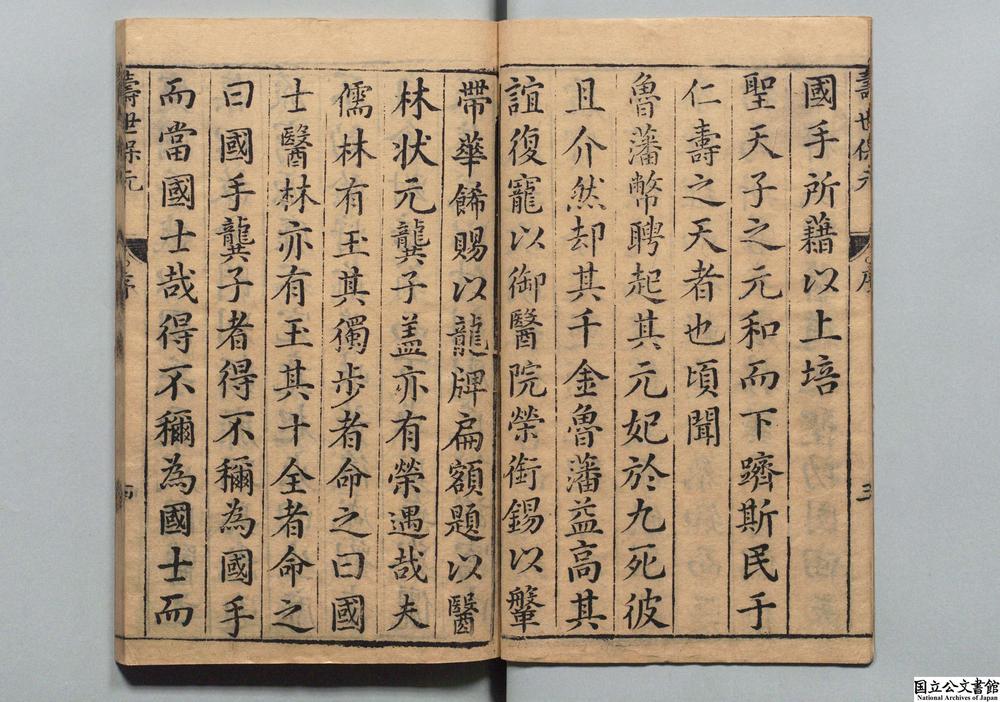 壽世保元
序
三
國手所藉以上培
聖天子之元和而下躋斯民于
仁壽之天者也頃聞
魯藩幣聘起其元妃於九死彼
且介然却其千金魯藩益高其
誼復寵以御醫院榮銜錫以鞶
帶華餙賜以龍牌扁額題以醫
林状元龔子盖亦有榮遇哉夫
儒林有王其獨步者命之曰國
士醫林亦有王其十全者命之
曰國手龔子者得不穪為國手
而當國士哉得不穪為國士而
壽世保元
序
四
国立公文書館
National Archives of Japan